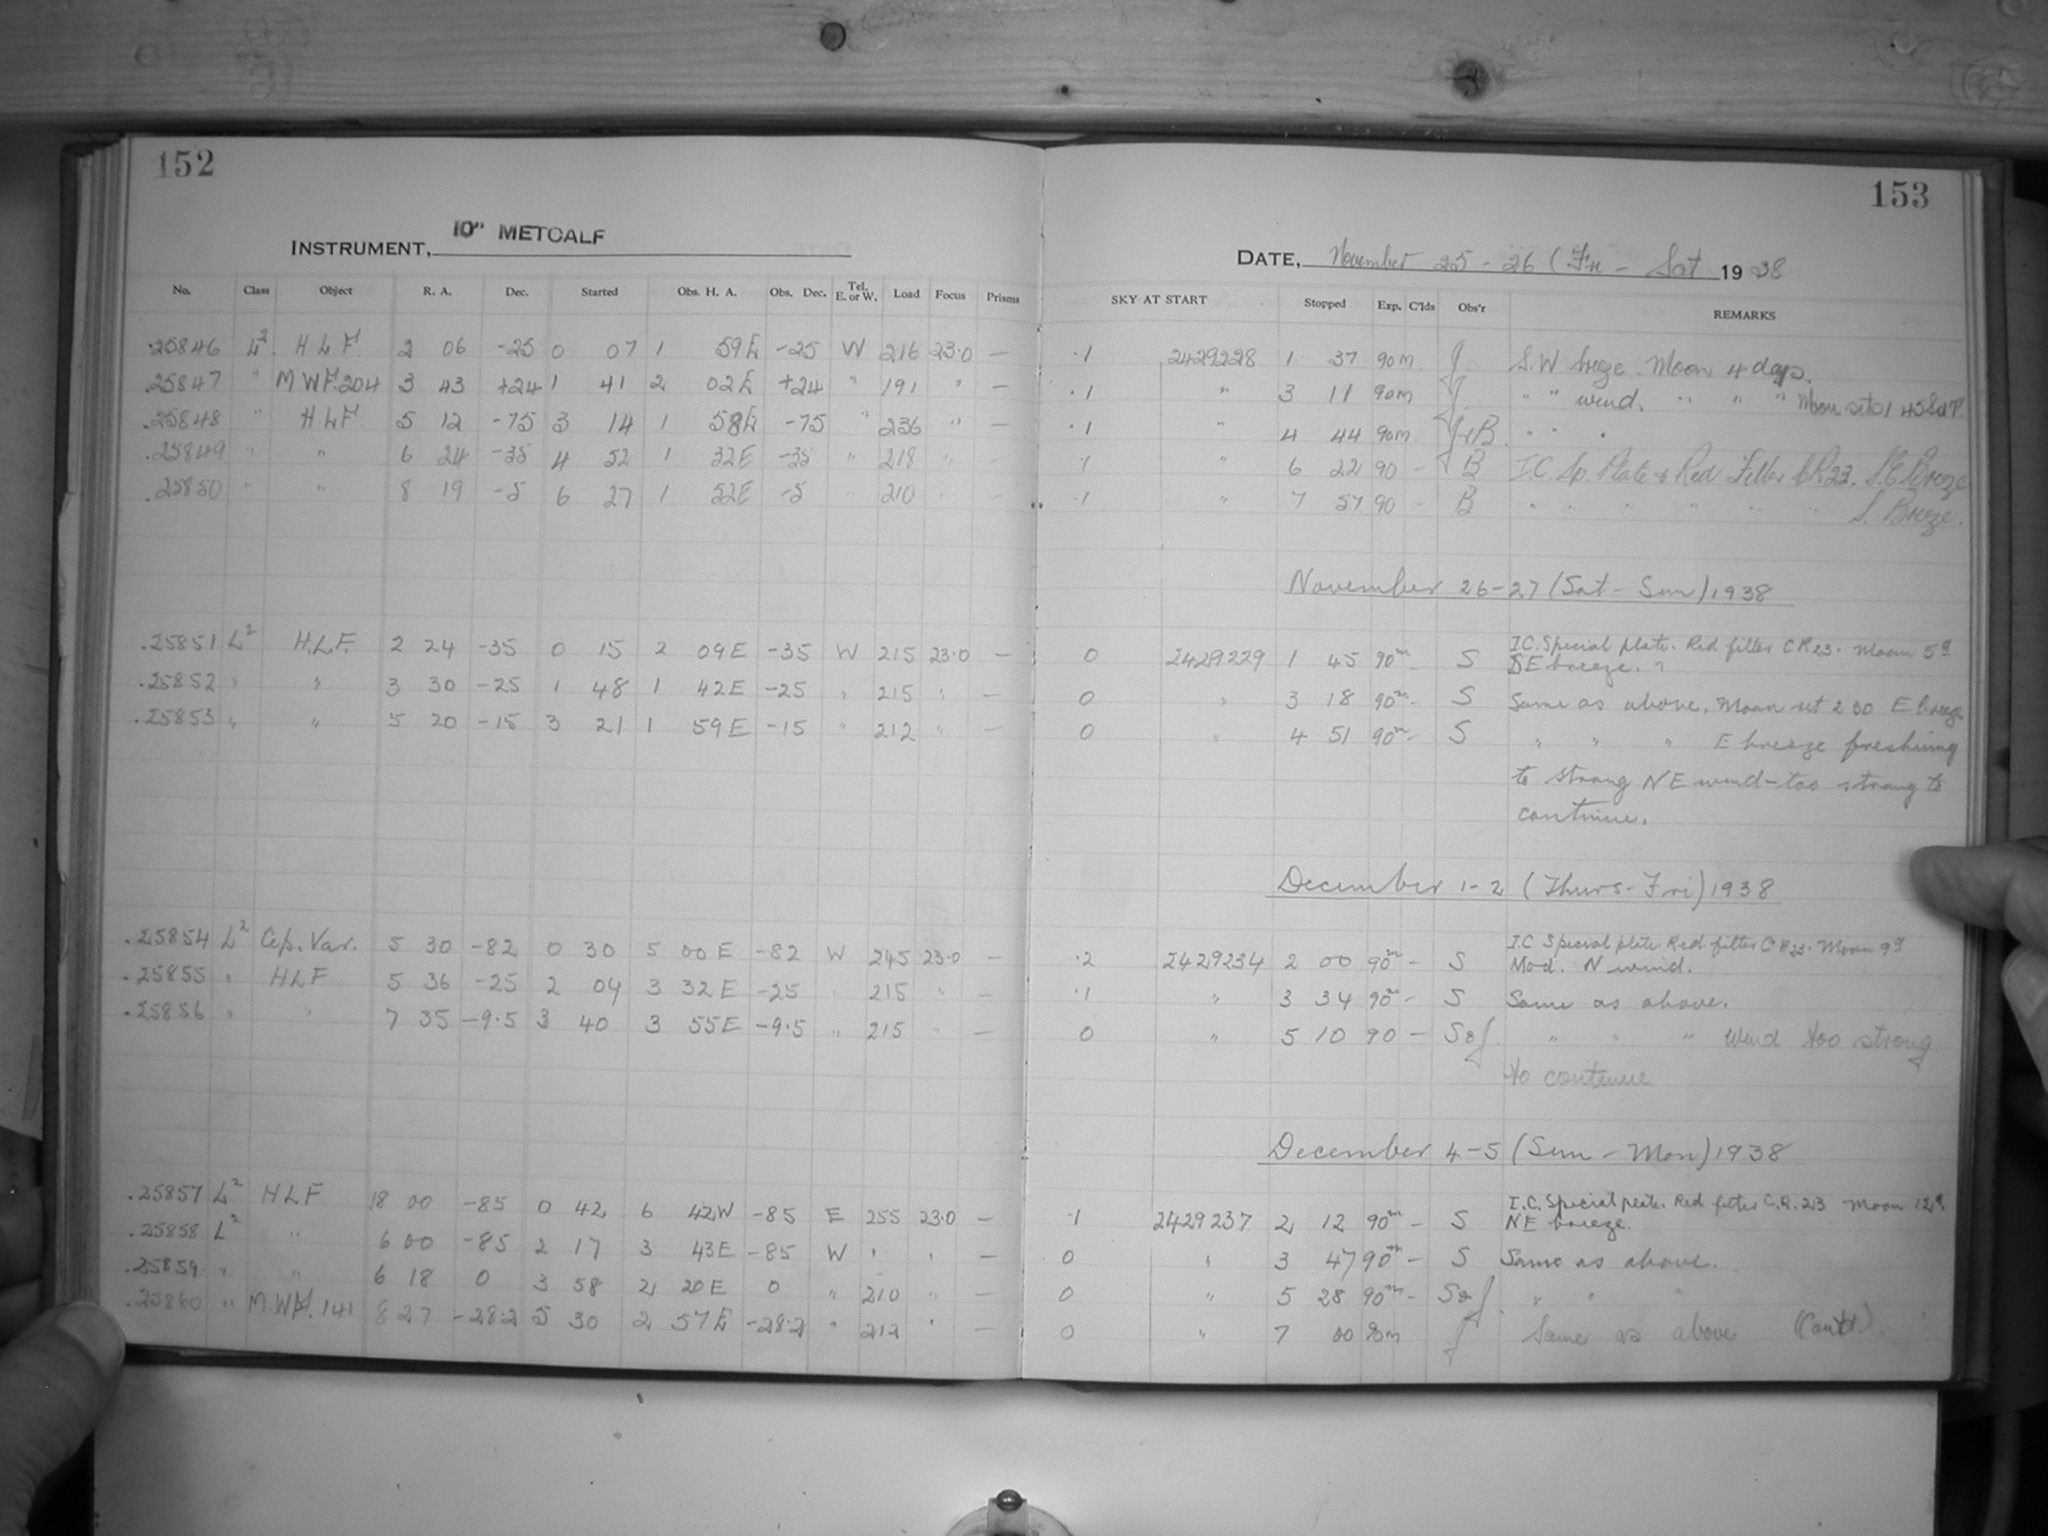 152
153
INSTRUMENT, 10" METCALF
DATE, November 25 - 26 (Fri - Sat 1938
No. Class Object R. A. Dec. Started Obs. H. A. Obs. Dec. Tel. E. or W. Load Focus Prisms SKY AT START Stopped Exp. C'lds Obs'r REMARKS
.25846 L² H L F 2 06 -25 0 07 1 59E -25 W 216 23.0 — .1 2429228 1 37 90m J S.W breeze. Moon 4 days.
.25847 " M W F 204 3 43 +24 1 41 2 02E +24 " 191 " — .1 " 3 11 90m J " " wind. " " " Moon set 01 45
.25848 " H L F 5 12 -75 3 14 1 58E -75 " 236 " — .1 " 4 44 90m J+B " " .
.25849 " " 6 24 -35 4 52 1 32E -35 " 218 " — .1 " 6 22 90 - B I.C. Sp. Plate & Red Filter CR23. S.E Breeze
.25850 " " 8 19 -5 6 27 1 52E -5 " 210 " — .1 " 7 57 90 - B " " " " " " S. Breeze.
November 26-27 (Sat - Sun) 1938
.25851 L² H.L.F. 2 24 -35 0 15 2 09E -35 W 215 23.0 — 0 2429229 1 45 90m S I.C. Special plate. Red filter CR23. Moon 5d
SE breeze.
.25852 " " 3 30 -25 1 48 1 42E -25 " 215 " — 0 " 3 18 90m- S Same as above. Moon set 2 30 E breeze
.25853 " " 5 20 -15 3 21 1 59E -15 " 212 " — 0 " 4 51 90m- S " " " E breeze freshining
to strong NE wind - too strong to
continue.
December 1-2 (Thurs - Fri) 1938
.25854 L² Cep. Var. 5 30 -82 0 30 5 00E -82 W 245 23.0 — .2 2429234 2 00 90m- S I.C. Special plate. Red filter CR23. Moon 9d
Mod. N wind.
.25855 " HLF 5 36 -25 2 04 3 32E -25 " 215 " — .1 " 3 34 90m- S Same as above.
.25856 " " 7 35 -9.5 3 40 3 55E -9.5 " 215 " — 0 " 5 10 90 - S&J " " " Wind too strong
to continue
December 4-5 (Sun - Mon) 1938
.25857 L² HLF 18 00 -85 0 42 6 42W -85 E 255 23.0 — .1 2429237 2 12 90m- S I.C. Special plate. Red filter C.R.23 Moon 12d
NE breeze.
.25858 L² " 6 00 -85 2 17 3 43E -85 W " " — 0 " 3 47 90m- S Same as above.
.25859 " " 6 18 0 3 58 2 20E 0 " 210 " — 0 " 5 28 90m- S&J " " "
.25860 " M.W.F. 141 8 27 -28.2 5 30 2 57E -28.2 " 212 " — 0 " 7 00 90m J Same as above (Cont'd).